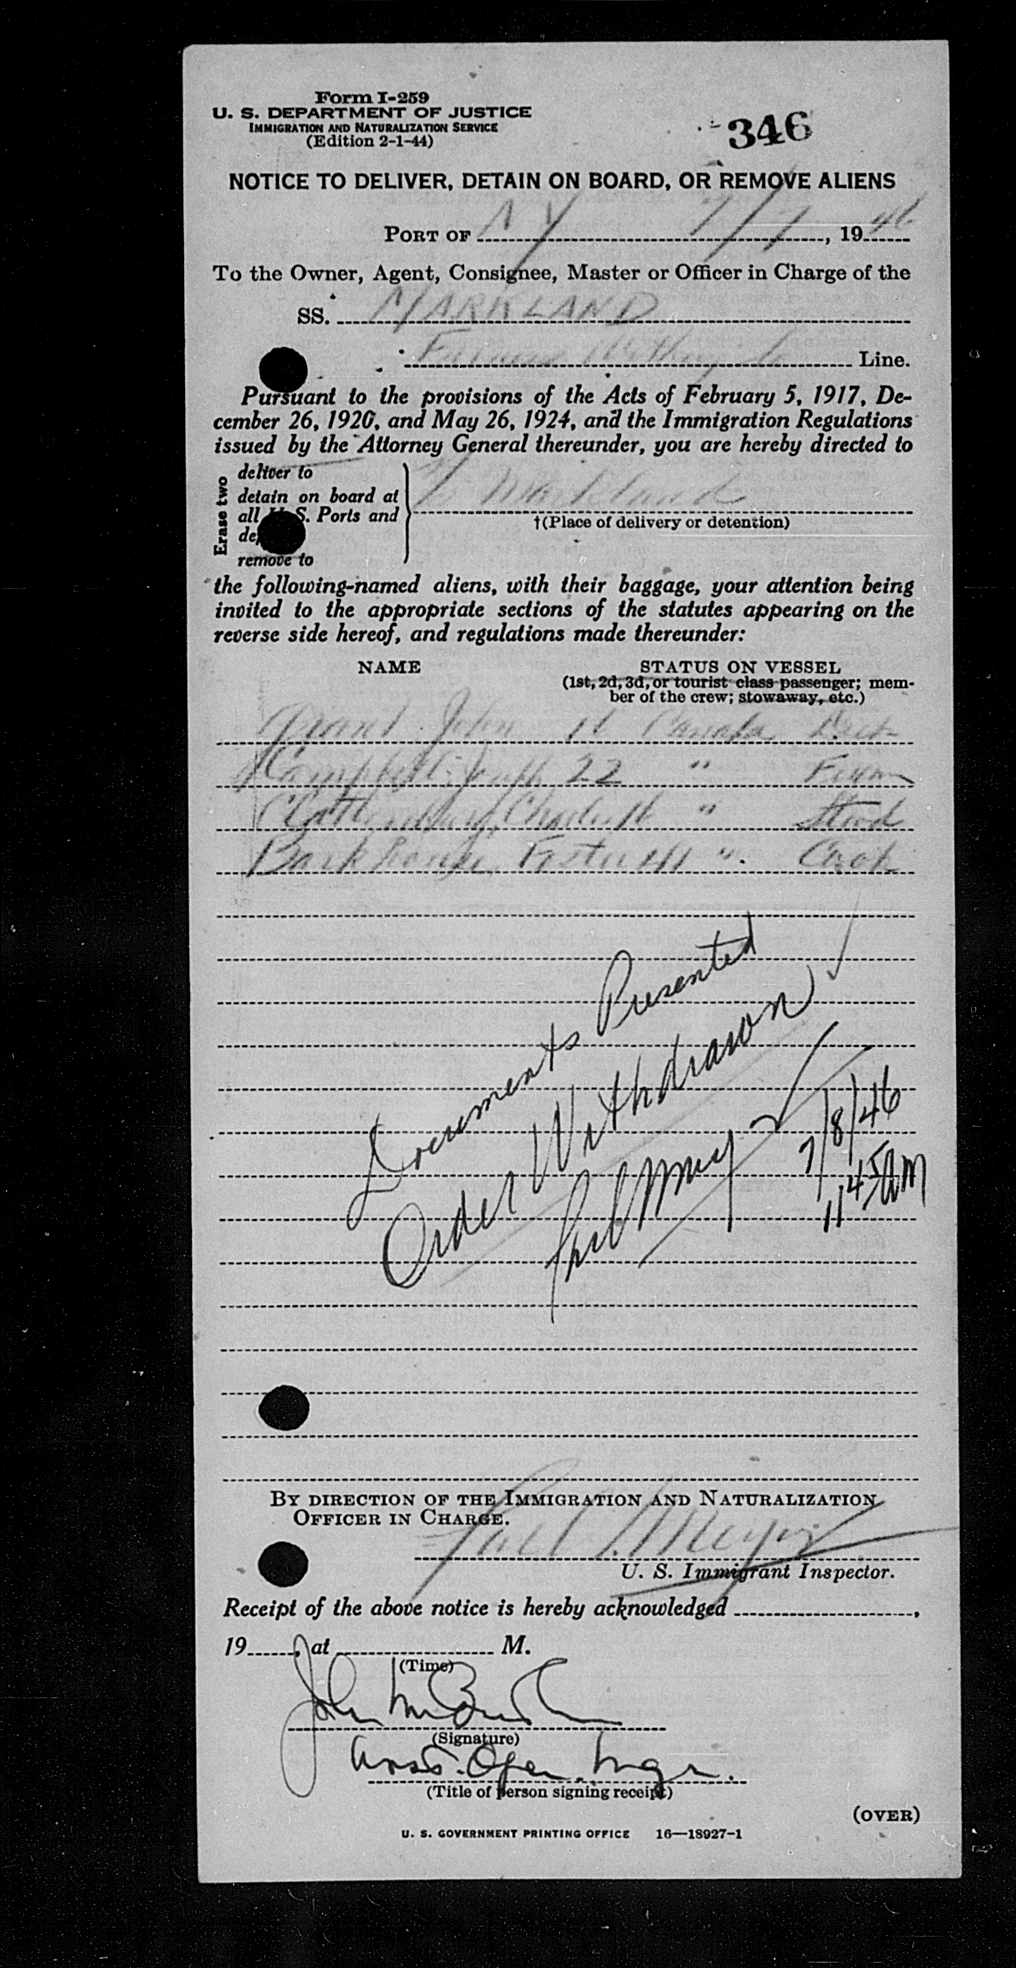 Form I-259
U. S. DEPARTMENT OF JUSTICE
IMMIGRATION AND NATURALIZATION SERVICE
(Edition 2-1-44)
346
NOTICE TO DELIVER, DETAIN ON BOARD, OR REMOVE ALIENS
PORT OF NY 7/7, 1946
To the Owner, Agent, Consignee, Master or Officer in Charge of the
SS. MARKLAND
Furness Withy Co Line.
Pursuant to the provisions of the Acts of February 5, 1917, De-
cember 26, 1920, and May 26, 1924, and the Immigration Regulations
issued by the Attorney General thereunder, you are hereby directed to
Erase two
deliver to
detain on board at
all U. S. Ports and
remove to
Markland
†(Place of delivery or detention)
the following-named aliens, with their baggage, your attention being
invited to the appropriate sections of the statutes appearing on the
reverse side hereof, and regulations made thereunder:
NAME STATUS ON VESSEL
(1st, 2d, 3d, or tourist class passenger; mem-
ber of the crew; stowaway, etc.)
Grant John 16 Canada Deck
Campbell Joseph 22 " Firem
Charles 16 " Stwd
Barkhouse, Foster 41 " Cook
Documents Presented
Order Withdrawn
Paul Meyer
7/8/46
1145 AM
BY DIRECTION OF THE IMMIGRATION AND NATURALIZATION
OFFICER IN CHARGE.
Paul Meyer
U. S. Immigrant Inspector.
Receipt of the above notice is hereby acknowledged ,
19 , at M.
(Time)
John
(Signature)
Asss. Oper. Mgr.
(Title of person signing receipt)
(OVER)
U. S. GOVERNMENT PRINTING OFFICE 16—18927-1